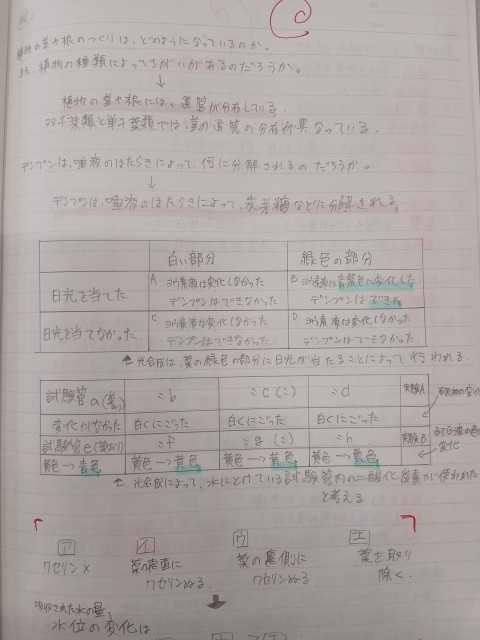 植物の茎や根のつくりは、どのようになっているのか。
また、植物の種類によってちがいがあるのだろうか。
↓
植物の茎や根には、道管が分布している。
双子葉類と単子葉類では、茎の道管の分布が異なっている。
デンプンは、唾液のはたらきによって、何に分解されるのだろうか。
↓
デンプンは、唾液のはたらきによって、麦芽糖などに分解される。
白い部分 緑色の部分
日光を当てた
A ヨウ素液は変化しなかった
デンプンはできなかった
B ヨウ素液は青紫色に変化した
デンプンはできた
日光を当てなかった
C ヨウ素液は変化しなかった
デンプンはできなかった
D ヨウ素液は変化しなかった
デンプンはできなかった
↑光合成は、葉の緑色の部分に日光が当たることによって行われる。
試験管a(葉) 〃b 〃c(〃) 〃d 実験A
変化がなかった 白くにごった 白くにごった 白くにごった
試験管e(葉あり) 〃f 〃g(〃) 〃h 実験B
黄色→青色 黄色→黄色 黄色→黄色 黄色→黄色
BTB液の色の変化
↑光合成によって、水にとけている試験管内の二酸化炭素が使われた
と考える
ア イ ウ エ
ワセリン× 葉の表面にワセリンぬる 葉の裏側にワセリンぬる 葉を取り除く.
吸収された水の量、
水位の変化は